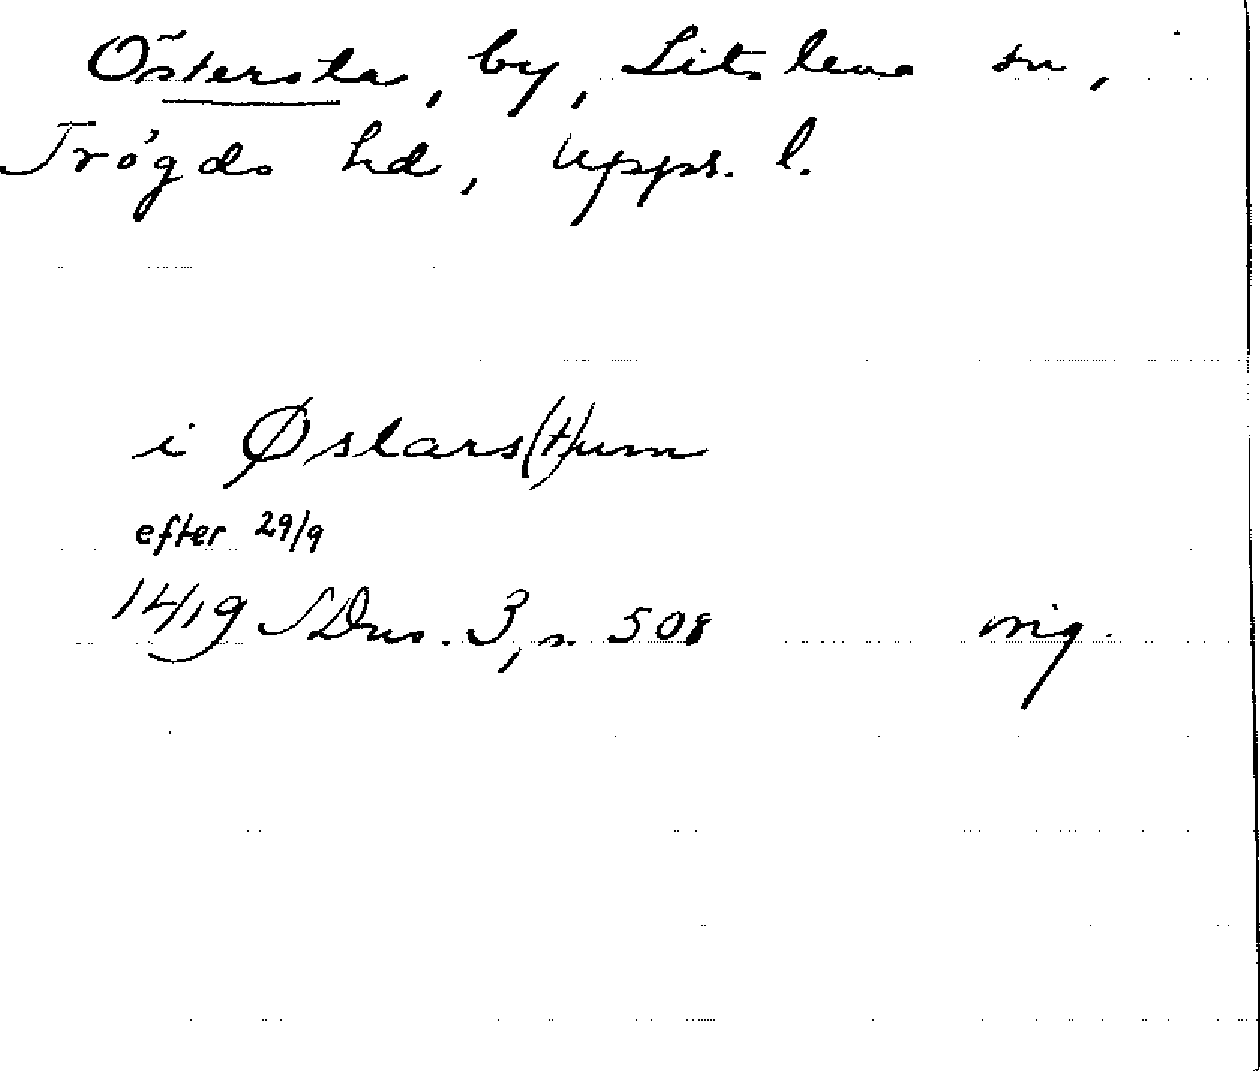 Östersta, by, Litslena sn,
Trögds hd, Upps. l.
i Østars(t)um
efter 29/9
1419 SDns. 3, s. 508 orig.